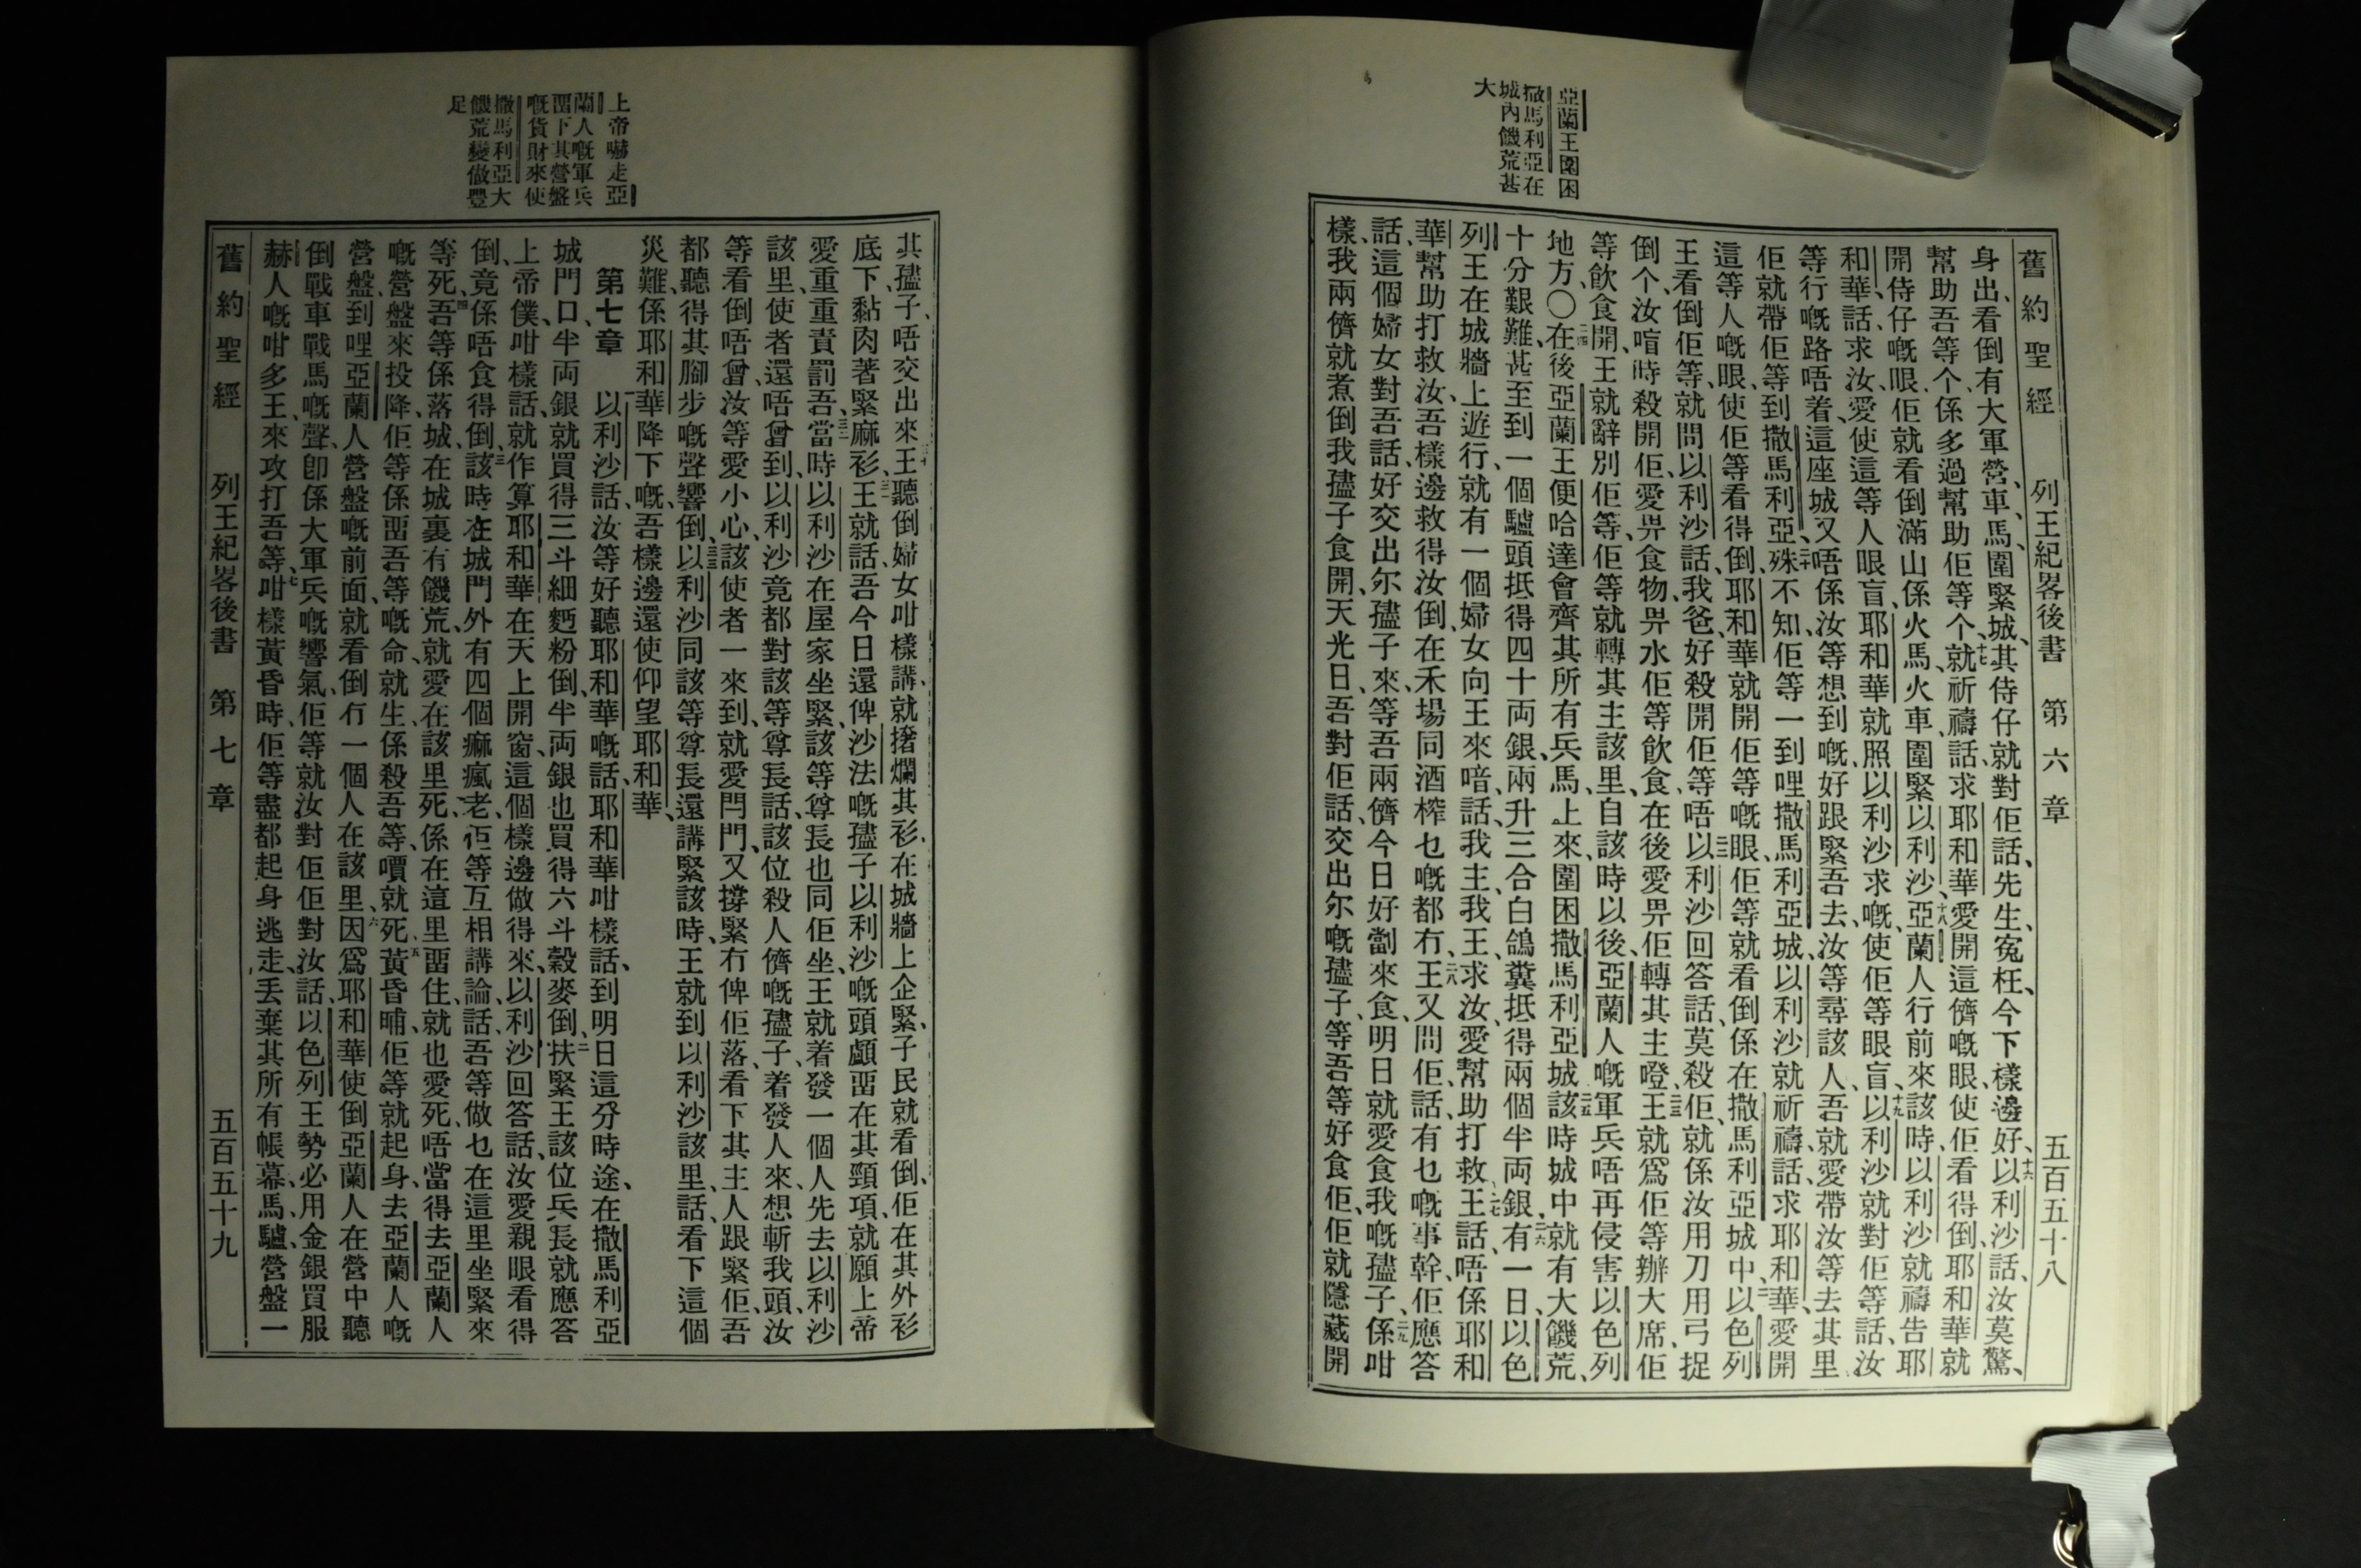 亞蘭王圍困
撒馬利亞在
城內饑荒甚
大
舊約聖經 列王紀畧後書 第六章 五百五十八
身出、看倒有大軍營、車、馬、圍緊城、其侍仔就對佢話、先生、寃枉、今下樣邊好、十六以利沙話、汝莫驚、
幫助吾等个、係多過幫助佢等个、十七就祈禱話、求耶和華、愛開這儕嘅眼、使佢看得倒、耶和華就
開侍仔嘅眼、佢就看倒滿山係火馬、火車、圍緊以利沙、十八亞蘭人行前來該時、以利沙就禱告耶
和華、話、求汝、愛使這等人眼盲、耶和華就照以利沙求嘅、使佢等眼盲、十九以利沙就對佢等話、汝
等行嘅路唔着、這座城又唔係汝等想到嘅、好跟緊吾去、汝等尋該人、吾就愛帶汝等去其里、
佢就帶佢等到撒馬利亞、二十殊不知、佢等一到哩撒馬利亞城、以利沙就祈禱話、求耶和華、愛開
這等人嘅眼、使佢等看得倒、耶和華就開佢等嘅眼、佢等就看倒係在撒馬利亞城中、二一以色列
王看倒佢等、就問以利沙話、我爸、好殺開佢等唔、二二以利沙回答話、莫殺佢、就係汝用刀用弓捉
倒个、汝喑時殺開佢、愛畀食物畀水佢等飲食、在後愛畀佢轉其主噔、二三王就爲佢等辦大席、佢
等飲食開、王就辭別佢等、佢等就轉其主該里、自該時以後、亞蘭人嘅軍兵唔再侵害以色列
地方、〇二四在後亞蘭王便哈達會齊其所有兵馬、上來圍困撒馬利亞城、二五該時城中就有大饑荒、
十分艱難、甚至到一個驢頭抵得四十両銀、兩升三合白鴿糞抵得兩個半両銀、二六有一日、以色
列王在城牆上遊行、就有一個婦女向王來喑、話、我主、我王、求汝、愛幫助打救、二七王話、唔係耶和
華幫助打救汝、吾樣邊救得汝倒、在禾場同酒榨乜嘅都冇、二八王又問佢、話、有乜嘅事幹、佢應答
話、這個婦女對吾話、好交出尔孻子來、等吾兩儕今日好劏來食、明日就愛食我嘅孻子、二九係咁
樣、我兩儕就煮倒我孻子食開、天光日、吾對佢話、交出尔嘅孻子、等吾等好食佢、佢就隱藏開
上帝嚇走亞
蘭人嘅軍兵
畱下其營盤
嘅貨財來使
撒馬利亞大
饑荒變做豐
足
其孻子、唔交出來、三十王聽倒婦女咁樣講、就撦爛其衫、在城牆上企緊、子民就看倒、佢在其外衫
底下黏肉著緊麻衫、三一王就話、吾今日還俾沙法嘅孻子以利沙嘅頭顱畱在其頸項、就願上帝
愛重重責罰吾、三二當時以利沙在屋家坐緊、該等尊長也同佢坐、王就着發一個人先去以利沙
該里、使者還唔曾到、以利沙竟都對該等尊長話、該位殺人儕嘅孻子、着發人來、想斬我頭、汝
等看倒唔曾、汝等愛小心、該使者一來到、就愛閂門、又撐緊冇俾佢落、看下其主人跟緊佢、吾
都聽得其腳步嘅聲響倒、三三以利沙同該等尊長還講緊該時、王就到以利沙該里、話、看下這個
災難、係耶和華降下嘅、吾樣邊還使仰望耶和華、
第七章 一以利沙話、汝等好聽耶和華嘅話、耶和華咁樣話、到明日這分時途、在撒馬利亞
城門口、半両銀就買得三斗細麪粉倒、半両銀也買得六斗穀麥倒、二扶緊王該位兵長就應答
上帝僕、咁樣話、就作算耶和華在天上開窗、這個樣邊做得來、以利沙回答話、汝愛親眼看得
倒、竟係唔食得倒、三該時在城門外有四個痲瘋老、佢等互相講論、話、吾等做乜在這里坐緊來
等死、四吾等係落城、在城裏有饑荒、就愛在該里死、係在這里畱住、就也愛死、唔當得去亞蘭人
嘅營盤來投降、佢等係畱吾等嘅命、就生、係殺吾等、嘳就死、五黃昏晡、佢等就起身、去亞蘭人嘅
營盤、到哩亞蘭人營盤嘅前面、就看倒冇一個人在該里、六因爲耶和華使倒亞蘭人在營中聽
倒戰車戰馬嘅聲、卽係大軍兵嘅響氣、佢等就汝對佢佢對汝話、以色列王勢必用金銀買服
赫人嘅咁多王、來攻打吾等、七咁樣黃昏時、佢等盡都起身逃走、丟棄其所有帳幕、馬、驢、營盤一
舊約聖經 列王紀畧後書 第七章 五百五十九